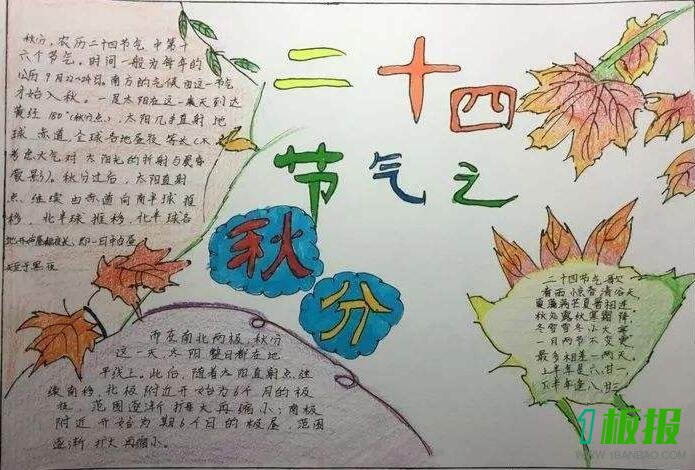 二十四
节气之
秋分
秋分，农历二十四节气中第十
六个节气，时间一般为每年的
公历9月22~24日。南方的气候由这一节气
才始入秋。一是太阳在这一天到达
黄经180°(秋分点)，太阳几乎直射地
球赤道，全球各地昼夜等长(不
考虑大气对太阳光的折射与晨昏
蒙影)。秋分过后，太阳直射
点继续由赤道向南半球推
移，北半球各
地开始昼短夜长，即一日中白昼
短于黑夜
而在南北两极，秋分
这一天，太阳整日都在地
平线上。此后，随着太阳直射点继
续南移，北极附近开始为6个月的极
夜，范围逐渐扩大再缩小；南极
附近开始为期6个月的极昼，范围
逐渐扩大再缩小。
二十四节气歌
春雨惊春清谷天
夏满芒夏暑相连
秋处露秋寒霜降
冬雪雪冬小大寒
一月两节不变更
最多相差一两天
上半年是六、廿一
下半年是八、廿三
1板报
WWW.1BANBAO.COM